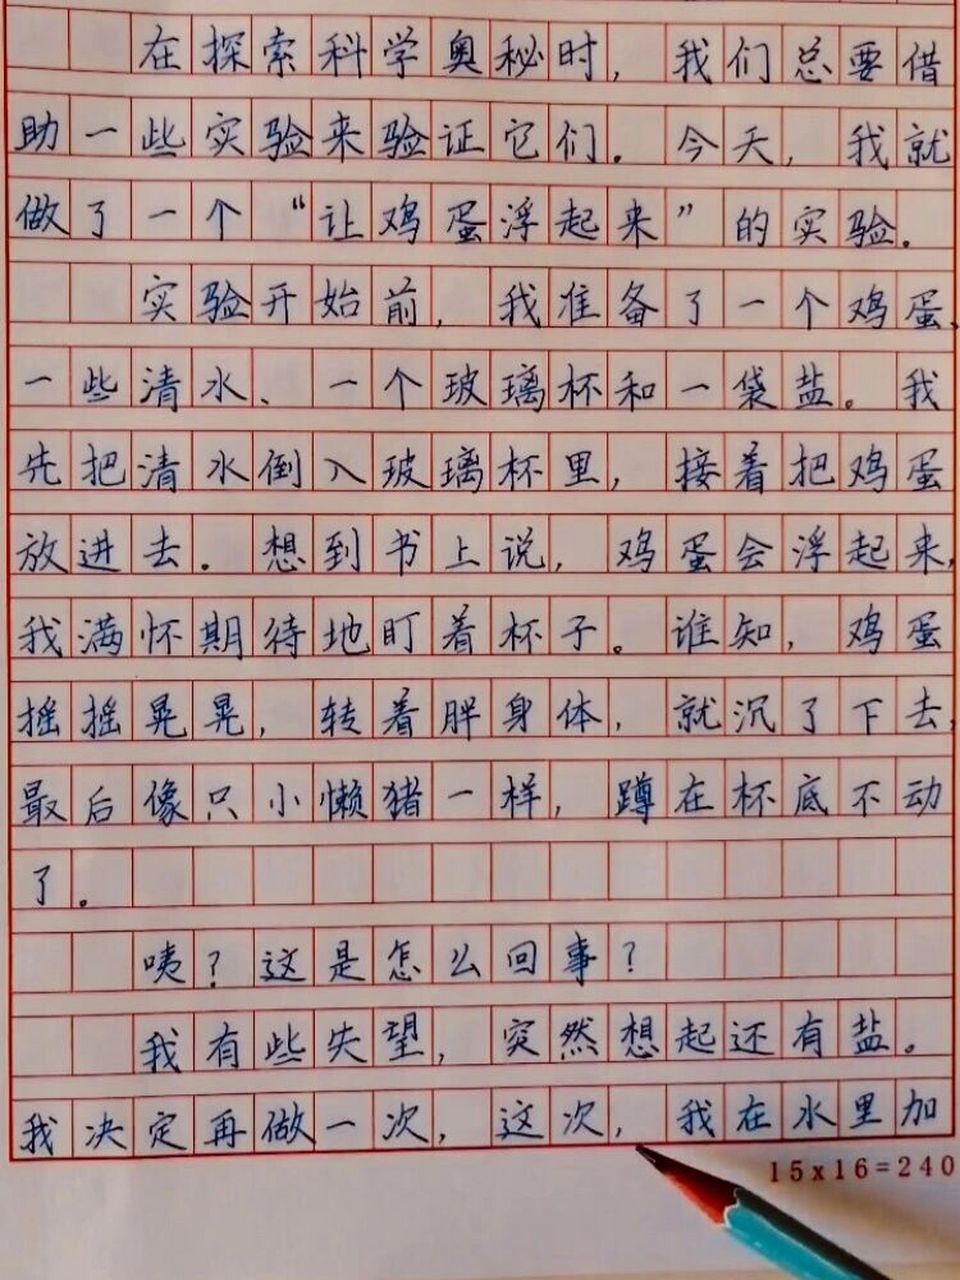 在探索科学奥秘时，我们总要借
助一些实验来验证它们。今天，我就
做了一个“让鸡蛋浮起来”的实验。
实验开始前，我准备了一个鸡蛋、
一些清水、一个玻璃杯和一袋盐。我
先把清水倒入玻璃杯里，接着把鸡蛋
放进去。想到书上说，鸡蛋会浮起来，
我满怀期待地盯着杯子。谁知，鸡蛋
摇摇晃晃，转着胖身体，就沉了下去，
最后像只小懒猪一样，蹲在杯底不动
了。
咦？这是怎么回事？
我有些失望，突然想起还有盐。
我决定再做一次，这次，我在水里加
15x16=240